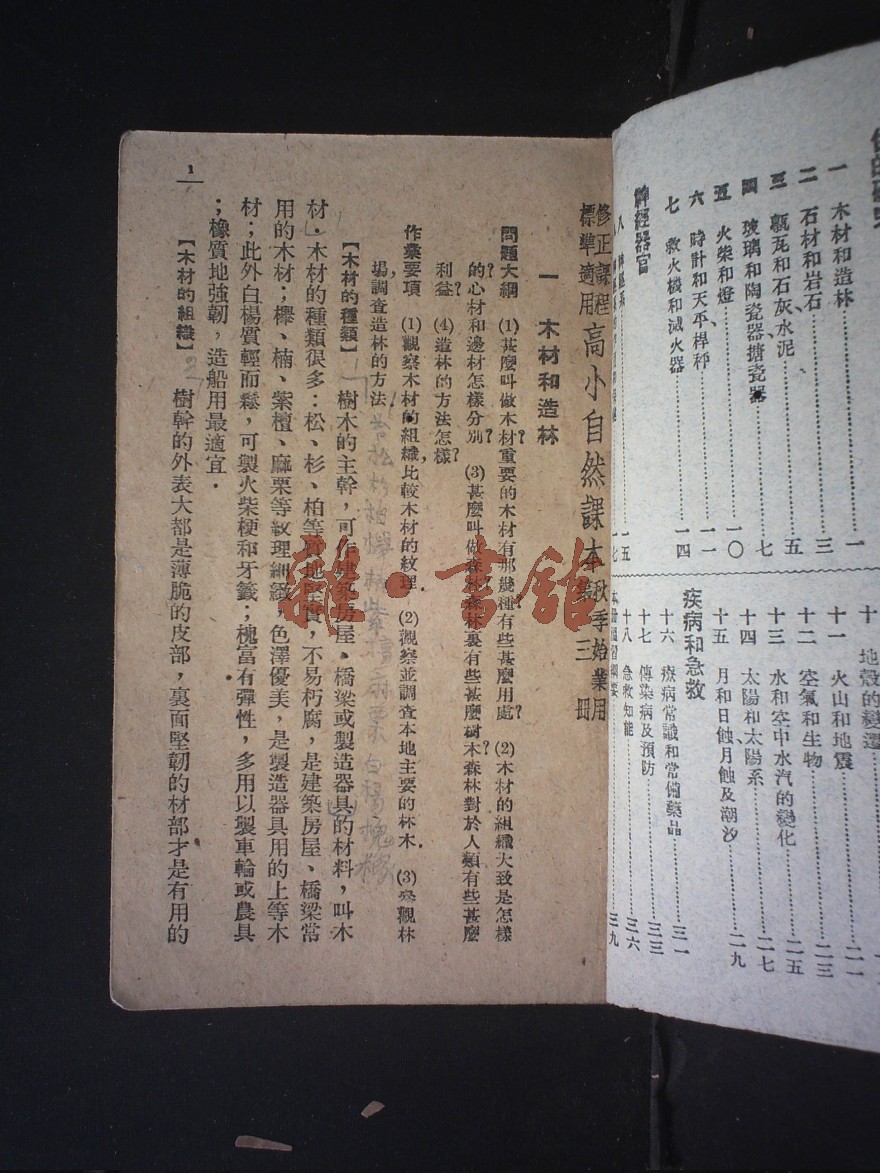 一 木材和造林……一
二 石材和岩石……三
三 甎瓦和石灰、水泥……五
四 玻璃和陶瓷器、搪瓷器……七
五 火柴和燈……一〇
六 時計和天平、桿秤……一一
七 救火機和滅火器……一四
神經器官
十一 火山和地震……二一
十二 空氣和生物……二三
十三 水和空中水汽的變化……二五
十四 太陽和太陽系……二七
十五 月和日蝕、月蝕及潮汐……二九
疾病和急救
十六 療病常識和常備藥品……三一
十七 傳染病及預防……三三
十八 急救知能……三六
修正課程
標準適用
高小自然課本
秋季始業用
第三冊
一 木材和造林
問題大綱 (1)甚麼叫做木材?重要的木材有那幾種?有些甚麼用處? (2)木材的組織大致是怎樣
的?心材和邊材怎樣分別? (3)甚麼叫做森林?森林裏有些甚麼樹木?森林對於人類有些甚麼
利益? (4)造林的方法怎樣?
作業要項 (1)觀察木材的組織,比較木材的紋理. (2)觀察並調查本地主要的林木. (3)參觀林
場,調查造林的方法.
【木材的種類】 樹木的主幹,可作建築房屋、橋梁或製造器具的材料,叫木
材.木材的種類很多:松、杉、柏等質地堅實,不易朽腐,是建築房屋、橋梁常
用的木材;櫸、楠、紫檀、麻栗等紋理細緻,色澤優美,是製造器具用的上等木
材;此外白楊質輕而鬆,可製火柴梗和牙籤;槐富有彈性,多用以製車輪或農具
;橡質地強韌,造船用最適宜.
【木材的組織】 樹幹的外表大都是薄脆的皮部,裏面堅韌的材部才是有用的
1
雜·書館